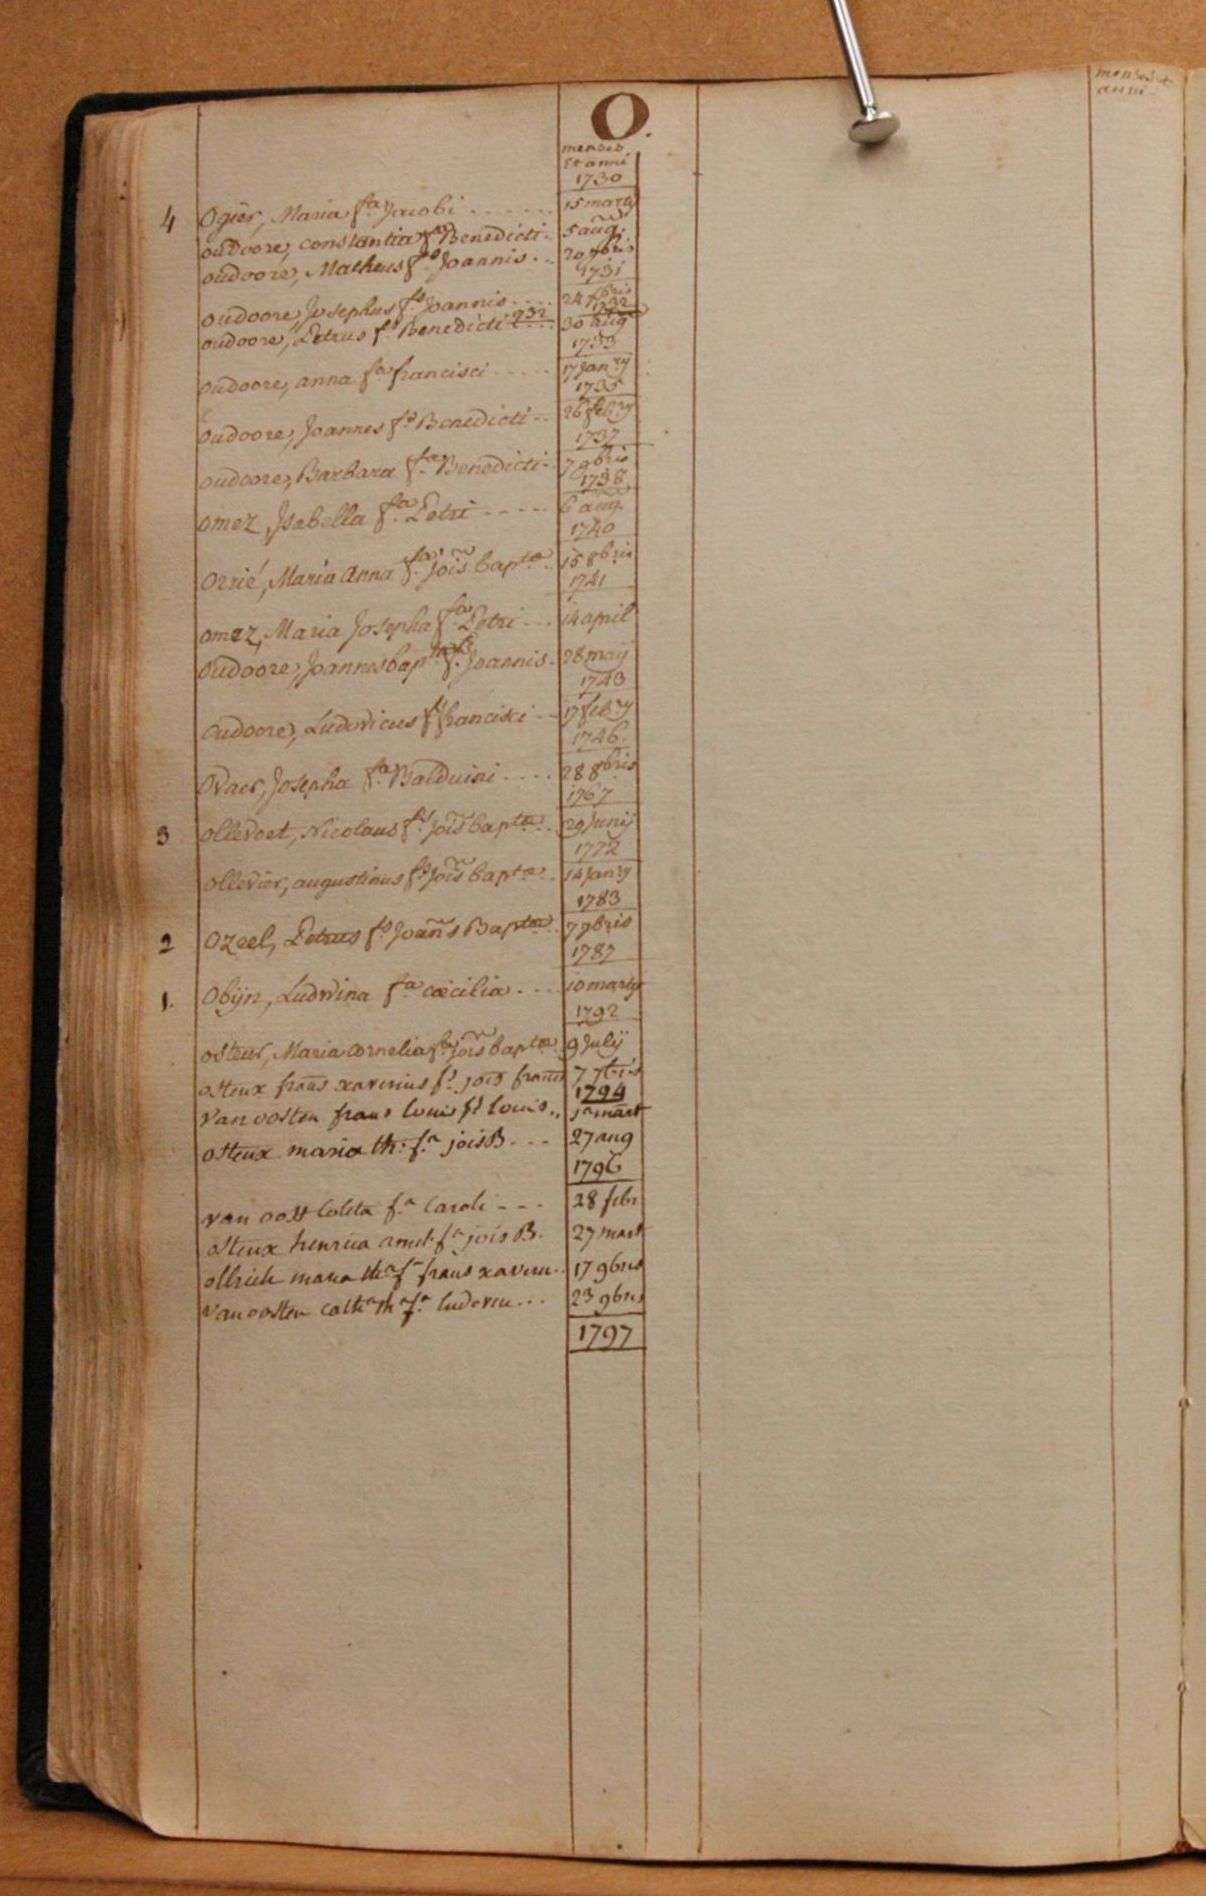 O.
menses et
anni
menses
et anni
1730
4 Ogier, Maria fa Jacobi ....... 15 martij
oudoore, constantia fa Benedicti. 5 aug.
oudoore, Matheus fs Joannis ... 20 9bris
1731
oudoore, Josephus fs Joannis .... 24 bris
1732
oudoore, Petrus fs Benedicti 732 30 aug
1733
oudoore, anna fa francisci ..... 17 janry
1735
oudoore, Joannes fs Benedicti ... 26 febry
1737
oudoore, Barbara fa Benedicti. 7 9bris
1738
omez, Jsabella fa Petri ..... 6 aug.
1740
Orrié, Maria Anna fa joīs baptæ. 15 8bris
1741
omez, Maria Josepha fa Petri ... 14 april
oudoore, Joannes bapt fs Joannis. 28 maij
1743
oudoore, Ludovicus fs francisci ... 17 febry
1746
Ovaer, Josepha fa Balduini .... 28 8bris
1767
3 ollevoet, Nicolaus fs joīs baptæ .. 29 Junij
1772
ollevier, augustinus fs joīs baptæ . 14 janry
1783
2 Ozeel, Petrus fs Joañs Baptæ . 7 9bris
1787
1. Obijn, Ludvina fa cæcilia .... 10 martij
1792
osteur, Maria cornelia fa joīs baptæ 9 Julij
osteux frans xaverius fs jois frans 7 7bris
1794
Van oosten frans louis fs louis.. 1a mart
osteux maria th. fa jois B ... 27 aug
1796
van oost coleta fa Caroli --- 28 febr
osteux henrica amel. fa jois B. 27 mart
maria tha fa frans xaveri.. 17 9bris
van oosten catha tha fa ludovici ... 23 9bris
1797